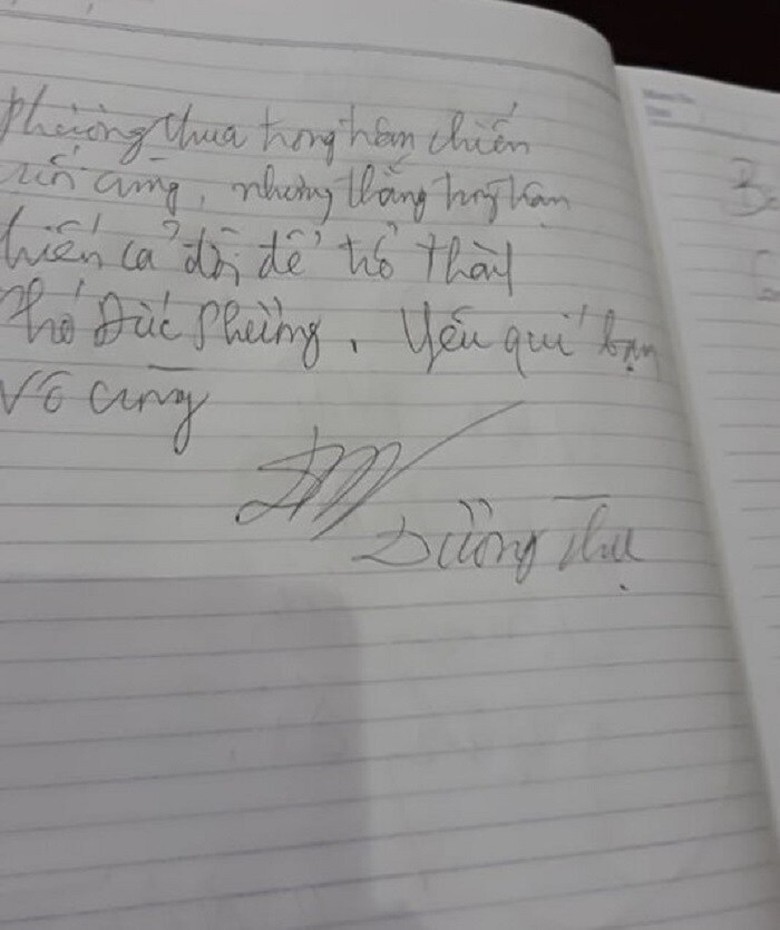 Phường thua trong trận chiến
cuối cùng, nhưng thắng trong trận
chiến cả đời để trở thành
Phó Đức Phường. Yêu quí bạn
Vô cùng
Dương Thụ